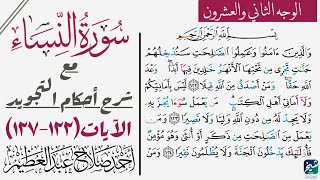 الوجه الثاني والعشرون
سورة النساء
مع
شرح أحكام التجويد
الآيات (١٢٢-١٢٧)
أحمد صلاح عبد العظيم
بسم الله الرحمن الرحيم
والذين ءامنوا وعملوا الصلحت سندخلهم
جنت تجرى من تحتها الأنهر خلدين فيها أبدا وعد
الله حقا ومن أصدق من الله قيلا ليس بأمانيكم
ولا أمانى أهل الكتب من يعمل سوءا يجز به
ولا يجد له من دون الله وليا ولا نصيرا ومن
يعمل من الصلحت من ذكر أو أنثى وهو مؤمن
فأولئك يدخلون الجنة ولا يظلمون نقيرا